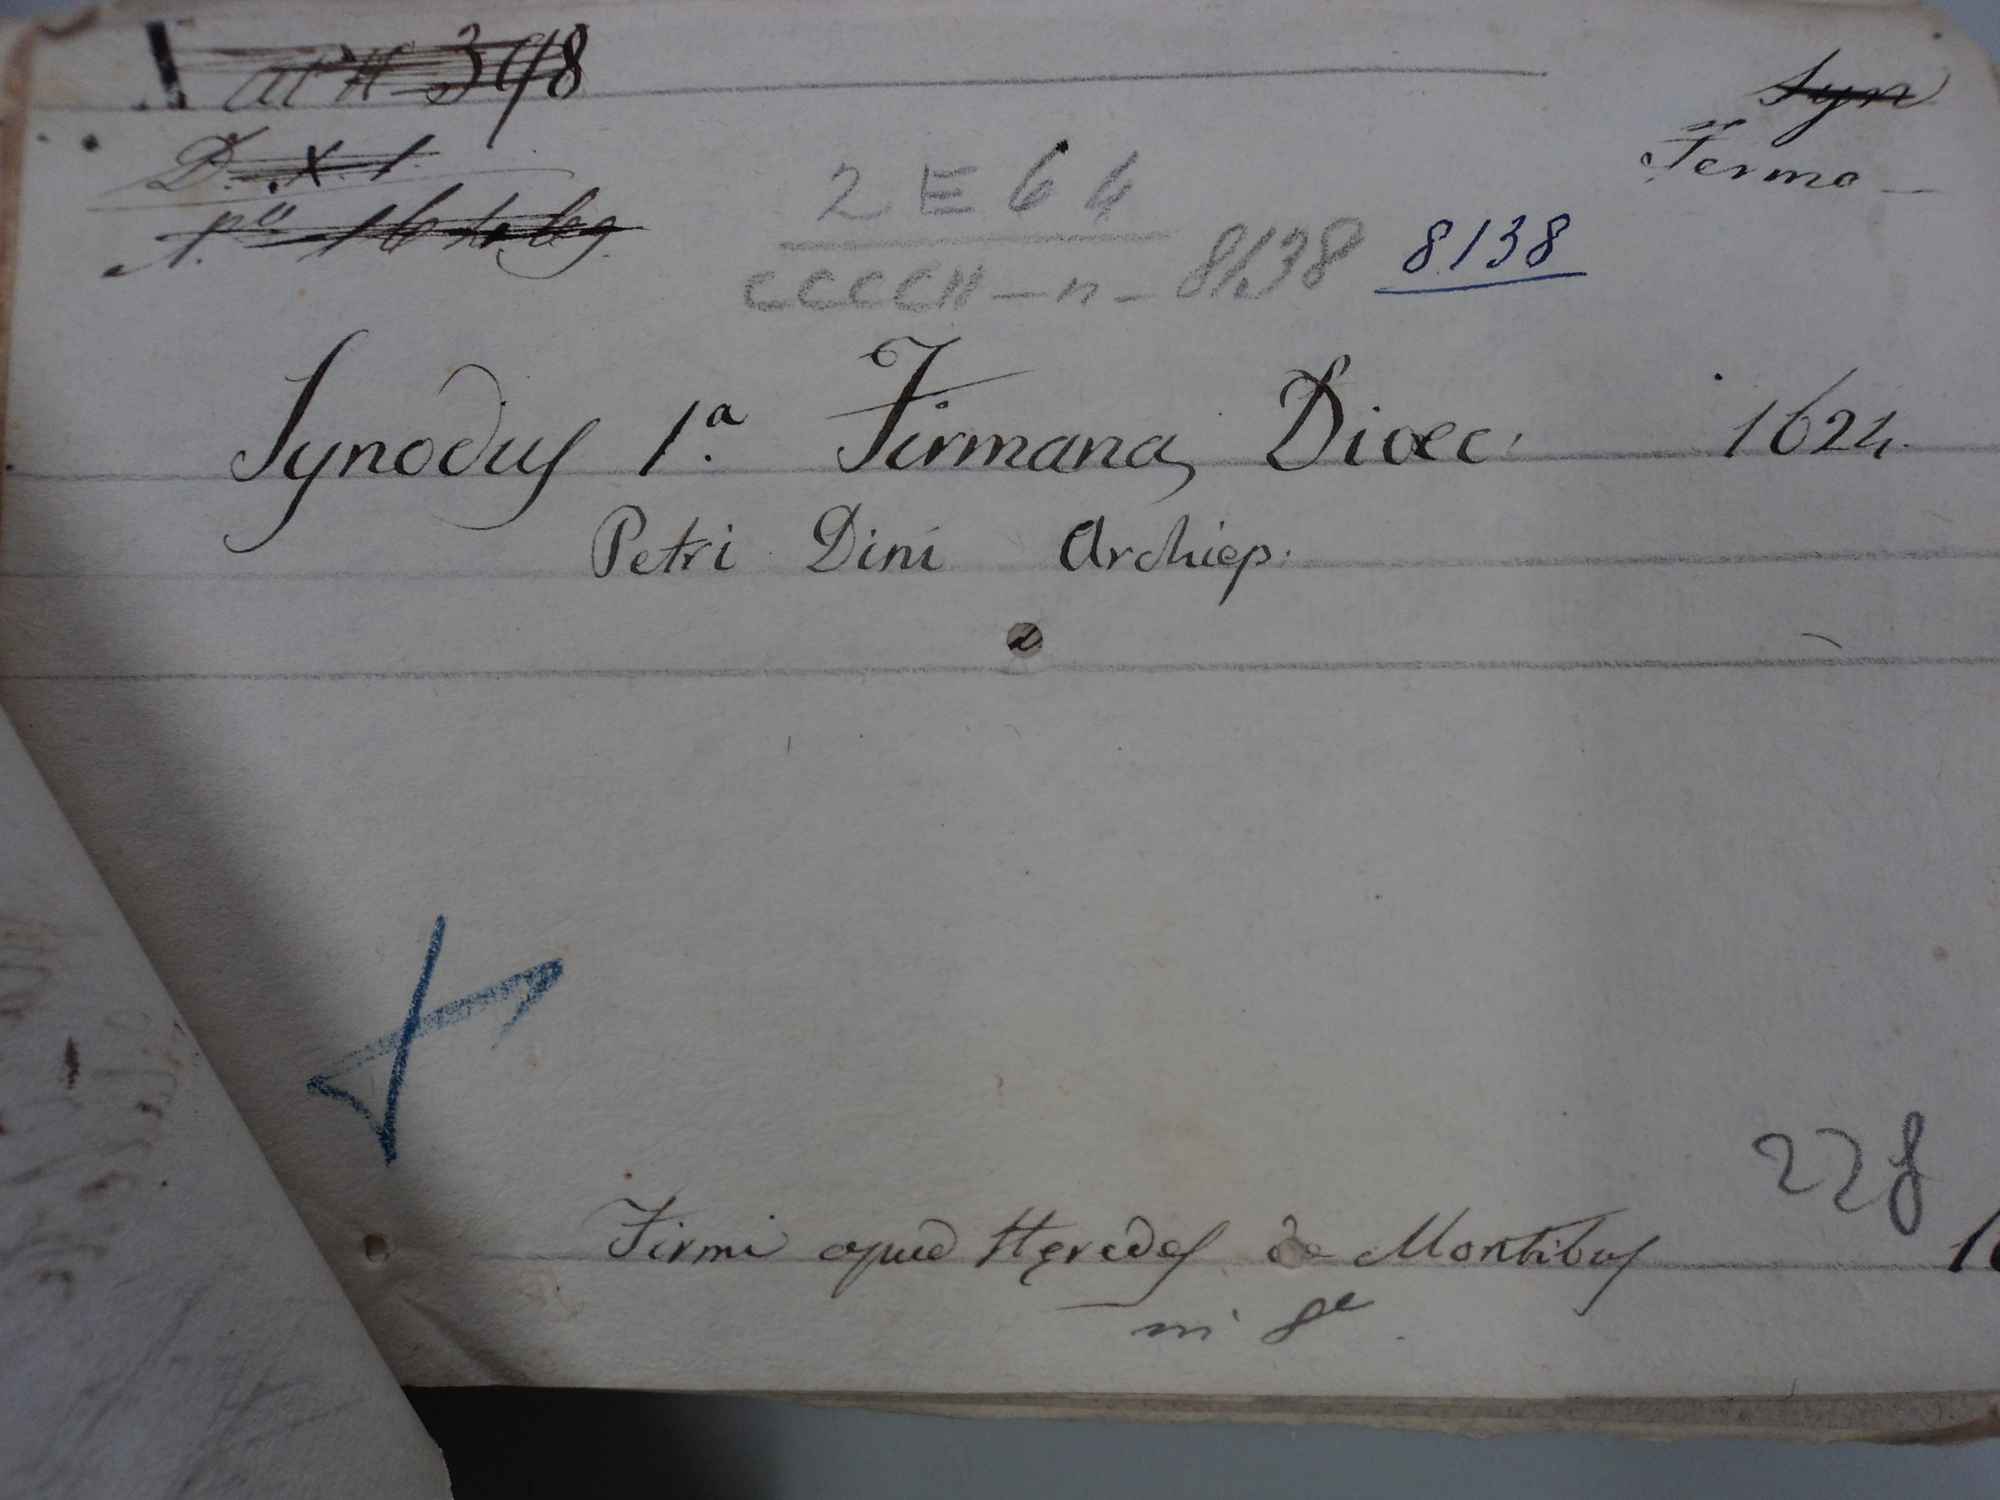 398
Syn
D. X. 1.
Fermo
2 E 64
CCCCII - n - 8138 8138
Synodus 1.ª Firmana Dioec: 1624.
Petri Dini Archiep:
228
Firmi apud Hęredes de Montibus
in 8º